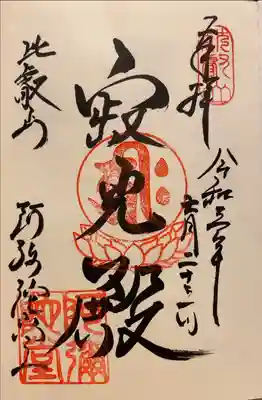 奉拝
令和三年
月二十一日
寂光殿
比叡山
阿弥陀堂